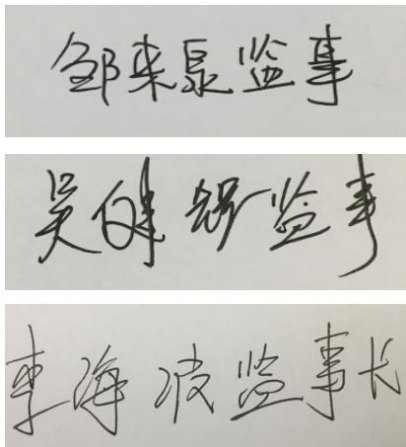 邹来泉监事
吴健辉监事
李海波监事长